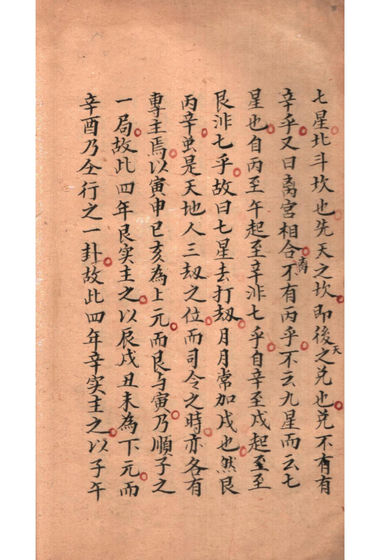 七星北斗坎也先天之坎即後天之兑也兑不有有
辛乎又曰离宮相合离不有丙乎不云九星而云七
星也自丙至午起至辛非七乎自辛至戌起至至
艮非七乎故曰七星去打刼月月常加戌也然艮
丙辛虽是天地人三刼之位而司令之時亦各有
專主焉以寅申巳亥為上元而艮与寅乃順子之
一局故此四年艮实主之以辰戌丑未為下元而
辛酉乃仝行之一卦故此四年辛实主之以子午